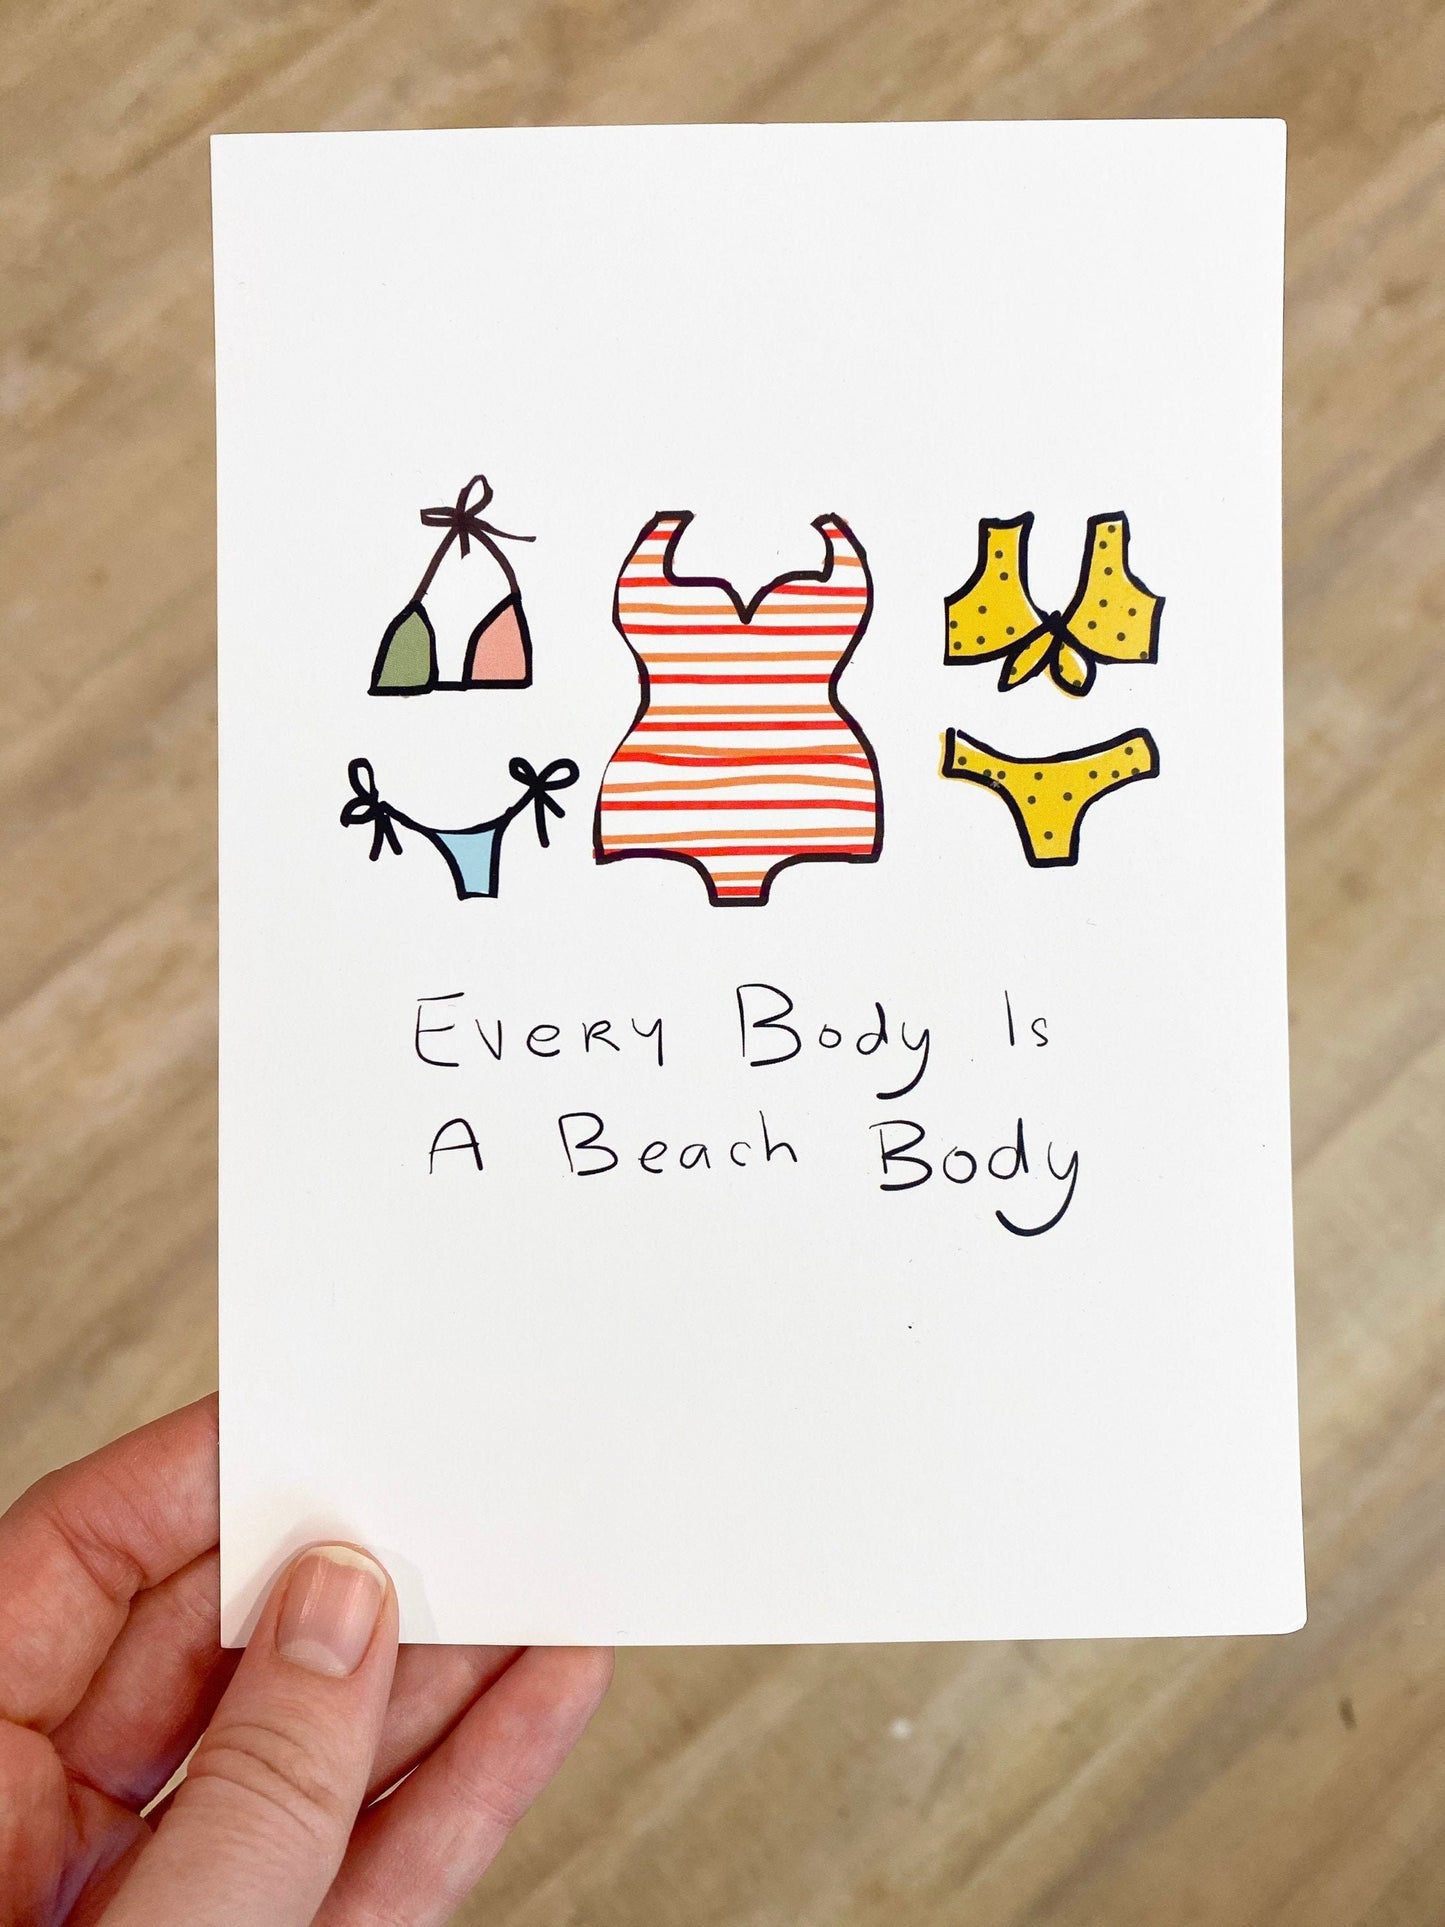 Every Body Is
A Beach Body